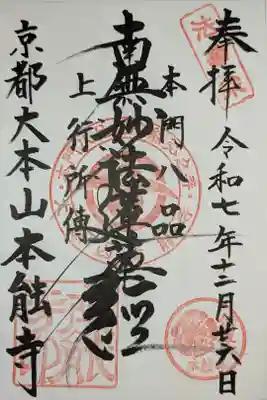 奉拝
令和七年十二月廿八日
本門八品
南無妙法蓮華経
上行所傳
京都大本山本能寺